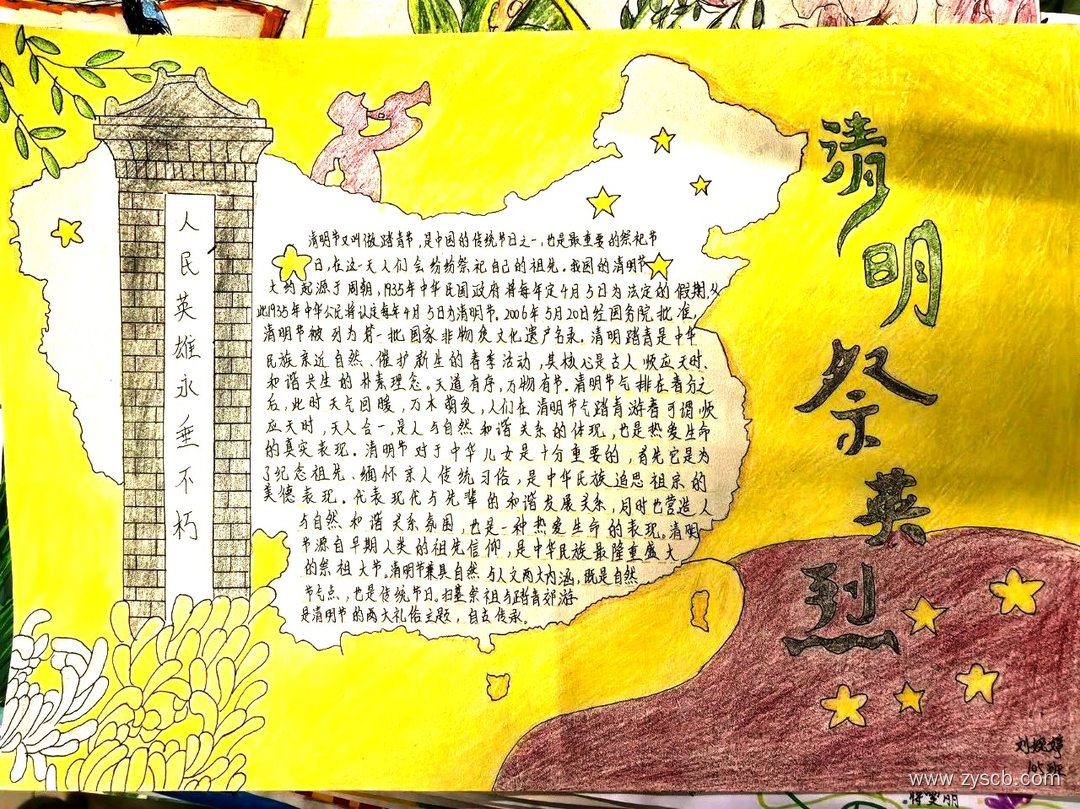 清明祭英烈
人民英雄永垂不朽
清明节又叫做踏青节,是中国的传统节日之一,也是最重要的祭祀节
日,在这一天人们会纷纷祭祀自己的祖先。我国的清明节
大约起源于周朝,1935年中华民国政府将每年定4月5日为法定的假期,从
此1935年中华公民将认定每年4月5日为清明节。2006年5月20日经国务院批准,
清明节被列为第一批国家非物质文化遗产名录。清明踏青是中华
民族亲近自然、催护新生的春季活动,其核心是古人顺应天时、
和谐共生的朴素理念。天道有序,万物有节。清明节气排在春分之
后,此时天气回暖,万木萌发,人们在清明节气踏青游春可谓顺
应天时,天人合一,是人与自然和谐关系的体现,也是热爱生命
的真实表现。清明节对于中华儿女是十分重要的,首先它是为
了纪念祖先、缅怀亲人传统习俗,是中华民族追思祖宗的
美德表现。代表现代与先辈的和谐发展关系,同时也营造人
与自然和谐关系氛围,也是一种热爱生命的表现。清明
节源自早期人类的祖先信仰,是中华民族最隆重盛大
的祭祖大节。清明节兼具自然与人文两大内涵,既是自然
节气点,也是传统节日。扫墓祭祖与踏青郊游
是清明节的两大礼俗主题,自古传承。
105班
www.zyscb.com